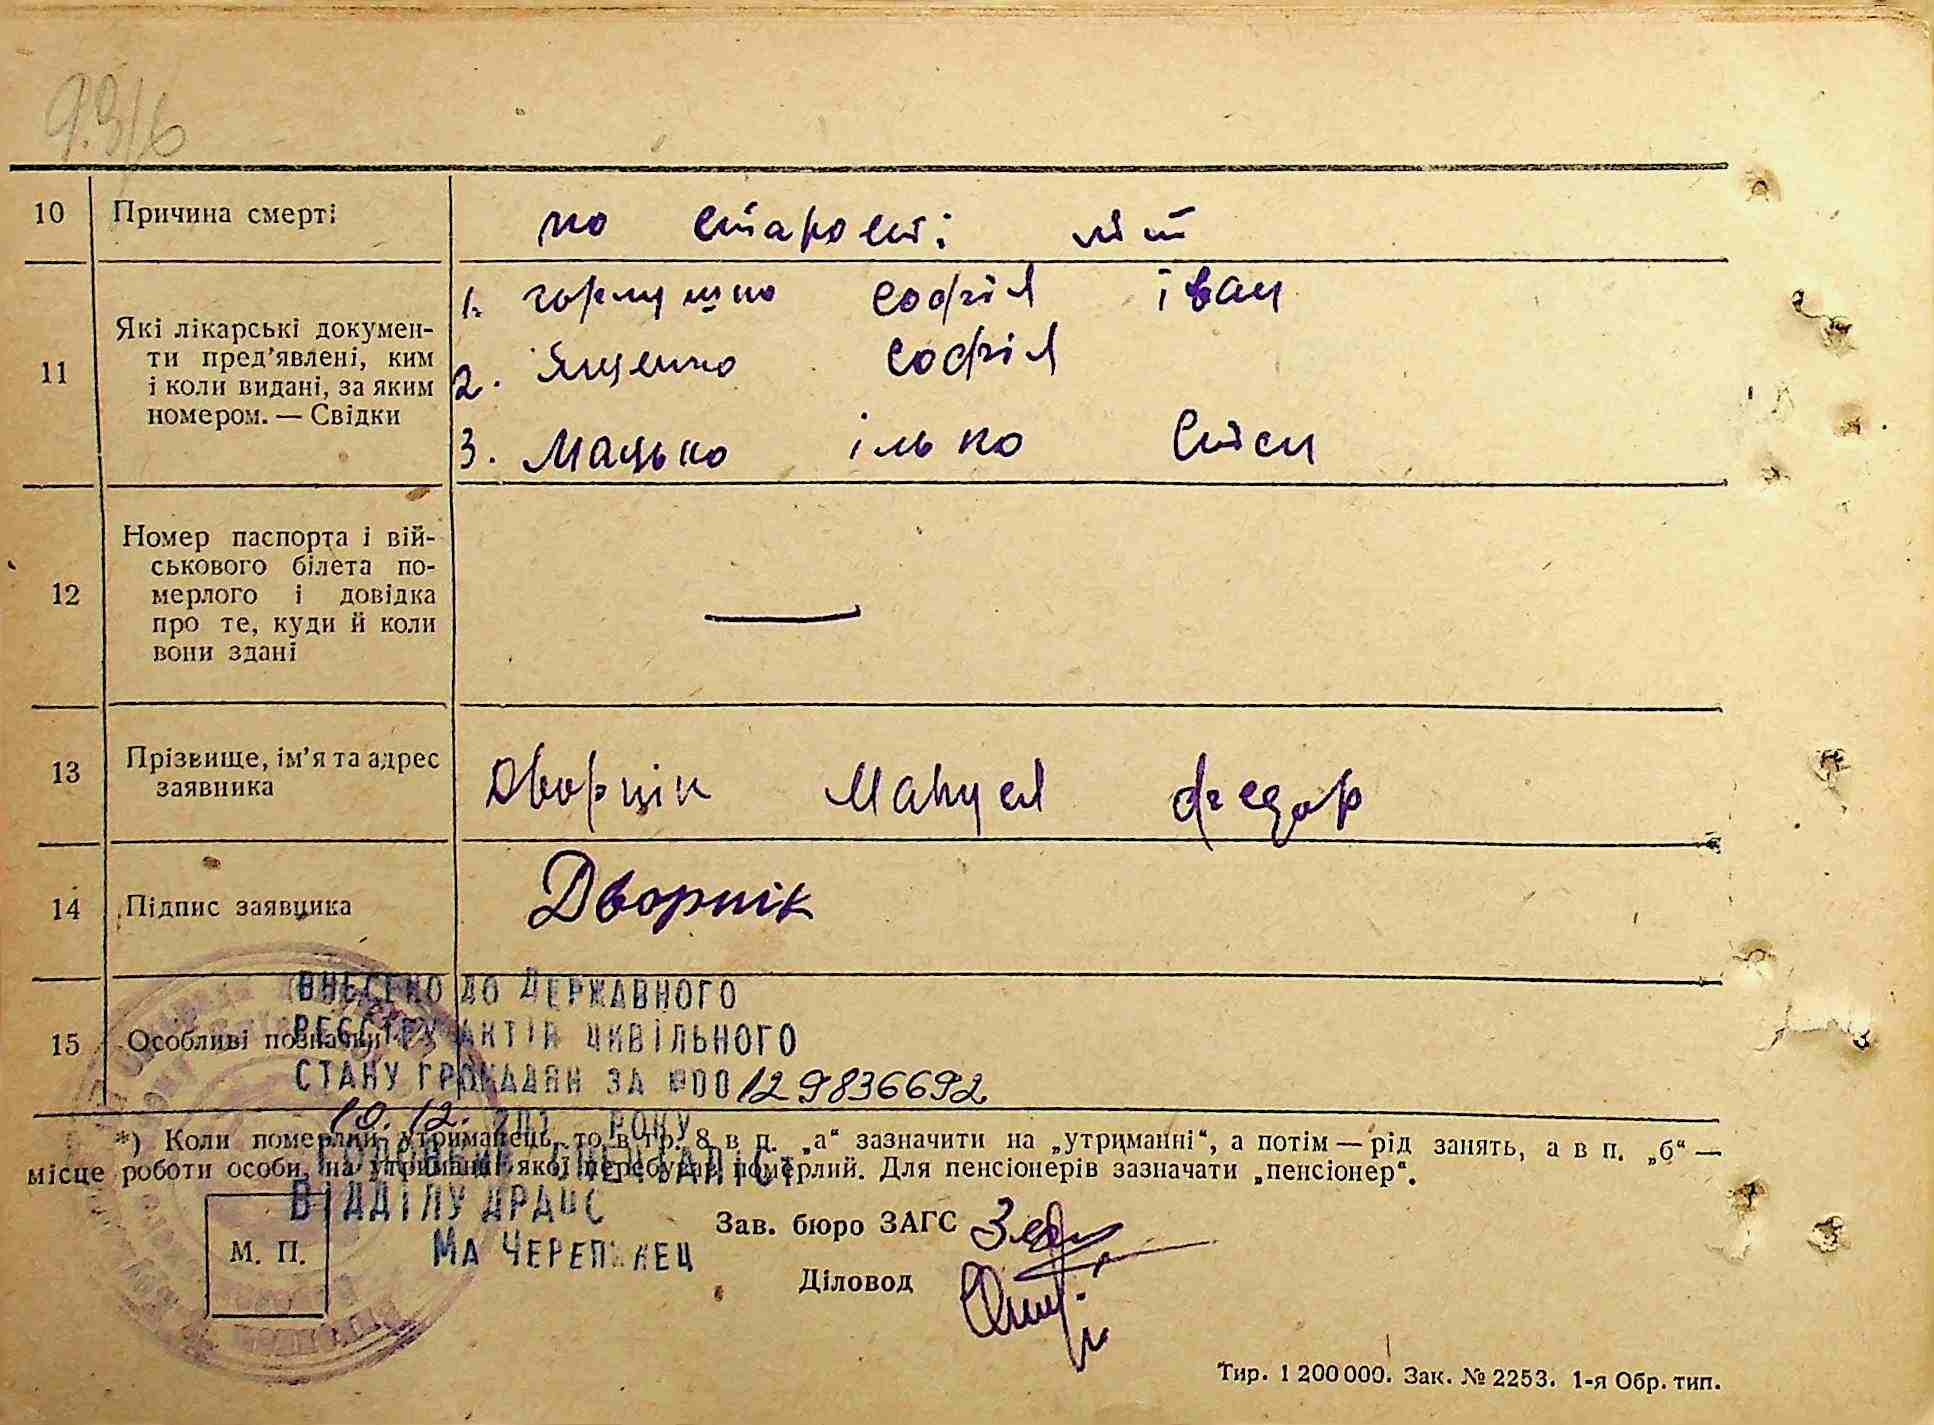 10 Причина смерті по старості літ
11 Які лікарські докумен-
ти пред'явлені, ким
і коли видані, за яким
номером. — Свідки
1. софія іван
2. Яценко софія
3. Мацько ілько
12 Номер паспорта і вій-
ськового білета по-
мерлого і довідка
про те, куди й коли
вони здані
—
13 Прізвище, ім'я та адрес
заявника
федор
14 Підпис заявника Дворнік
ВНЕСЕНО ДО ДЕРЖАВНОГО
РЕЄСТРУ АКТІВ ЦИВІЛЬНОГО
15 Особливі позначки
СТАНУ ГРОМАДЯН ЗА №00129836692
10.12. РОКУ
*) Коли померлий утриманець, то в гр. 8 в п. „а“ зазначити на „утриманні“, а потім — рід занять, а в п. „б“ —
місце роботи особи, на утриманні якої перебував померлий. Для пенсіонерів зазначати „пенсіонер“.
ГОЛОВНИЙ СПЕЦІАЛІСТ
ВІДДІЛУ ДРАЦС
Зав. бюро ЗАГС
М. П.
МА
Діловод
Тир. 1 200 000. Зак. № 2253. 1-я Обр. тип.